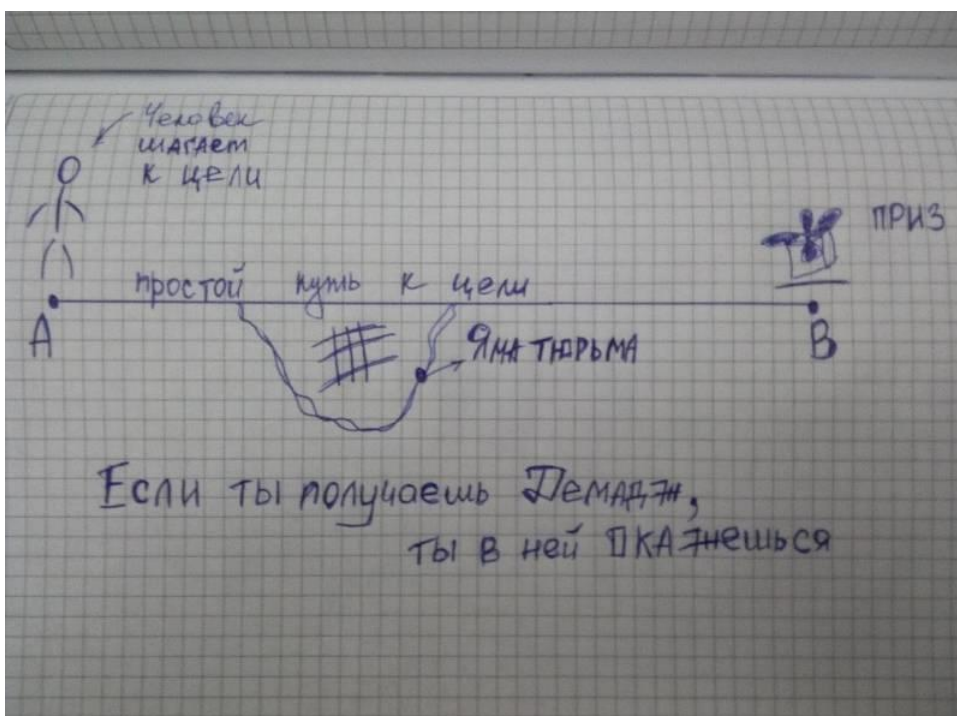 Человек
шагает
к цели
ПРИЗ
простой путь к цели
А
В
Яма тюрьма
Если ты получаешь Демадж,
ты в ней окажешься